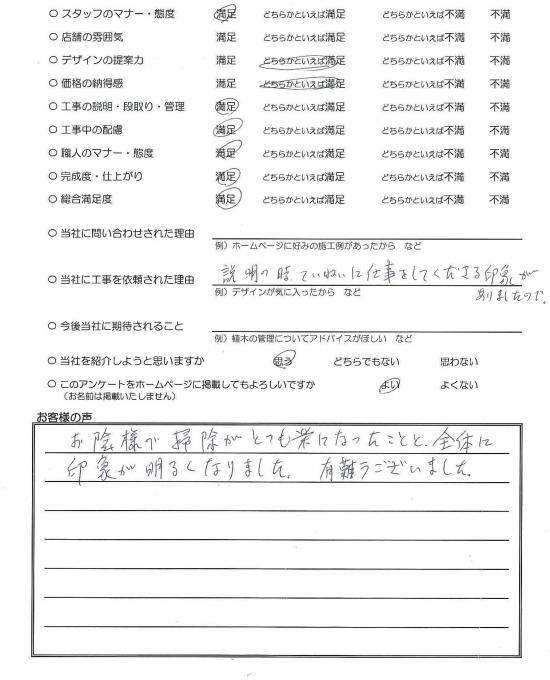 ○ スタッフのマナー・態度 満足 どちらかといえば満足 どちらかといえば不満 不満
○ 店舗の雰囲気 満足 どちらかといえば満足 どちらかといえば不満 不満
○ デザインの提案力 満足 どちらかといえば満足 どちらかといえば不満 不満
○ 価格の納得感 満足 どちらかといえば満足 どちらかといえば不満 不満
○ 工事の説明・段取り・管理 満足 どちらかといえば満足 どちらかといえば不満 不満
○ 工事中の配慮 満足 どちらかといえば満足 どちらかといえば不満 不満
○ 職人のマナー・態度 満足 どちらかといえば満足 どちらかといえば不満 不満
○ 完成度・仕上がり 満足 どちらかといえば満足 どちらかといえば不満 不満
○ 総合満足度 満足 どちらかといえば満足 どちらかといえば不満 不満
○ 当社に問い合わせされた理由
例）ホームページに好みの施工例があったから など
○ 当社に工事を依頼された理由 説明の時ていねいに仕事をしてくださる印象が
ありましたので。
例）デザインが気に入ったから など
○ 今後当社に期待されること
例）植木の管理についてアドバイスがほしい など
○ 当社を紹介しようと思いますか 思う どちらでもない 思わない
○ このアンケートをホームページに掲載してもよろしいですか よい よくない
（お名前は掲載いたしません）
お客様の声
お陰様で 掃除がとても楽になったことと、全体に
印象が明るくなりました。 有難うございました。